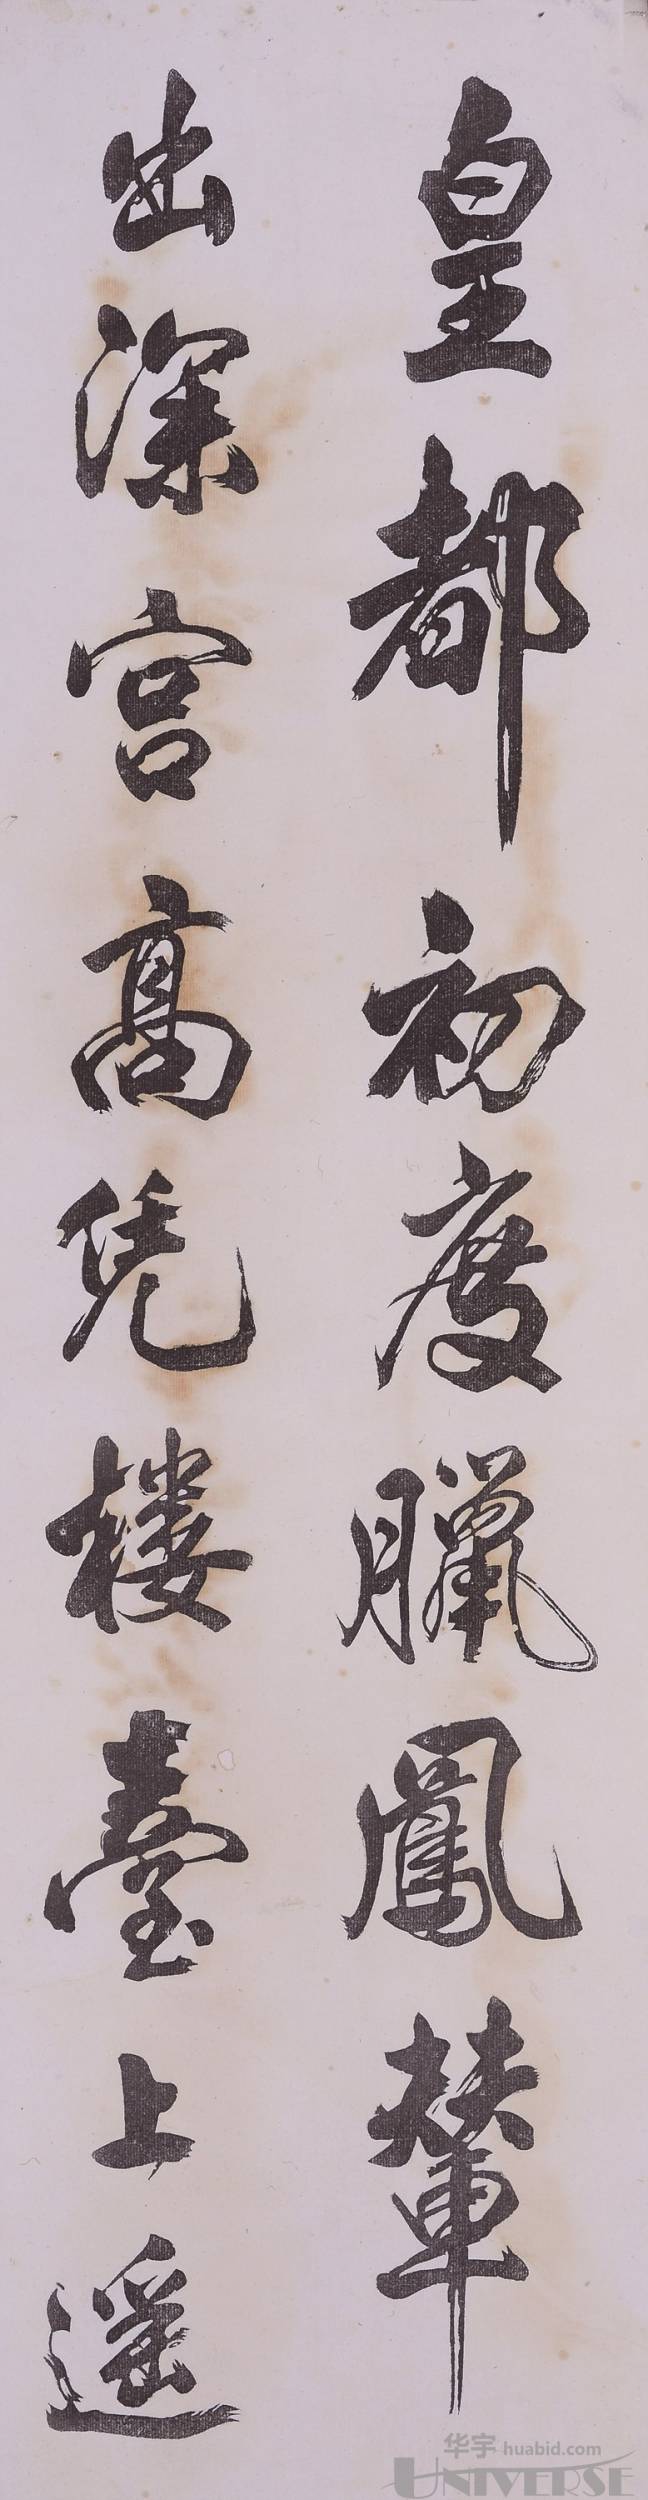 皇都初度臘鳳輦
出深宮高凭樓臺上遥
华宇 huabid.com
UNIVERSE